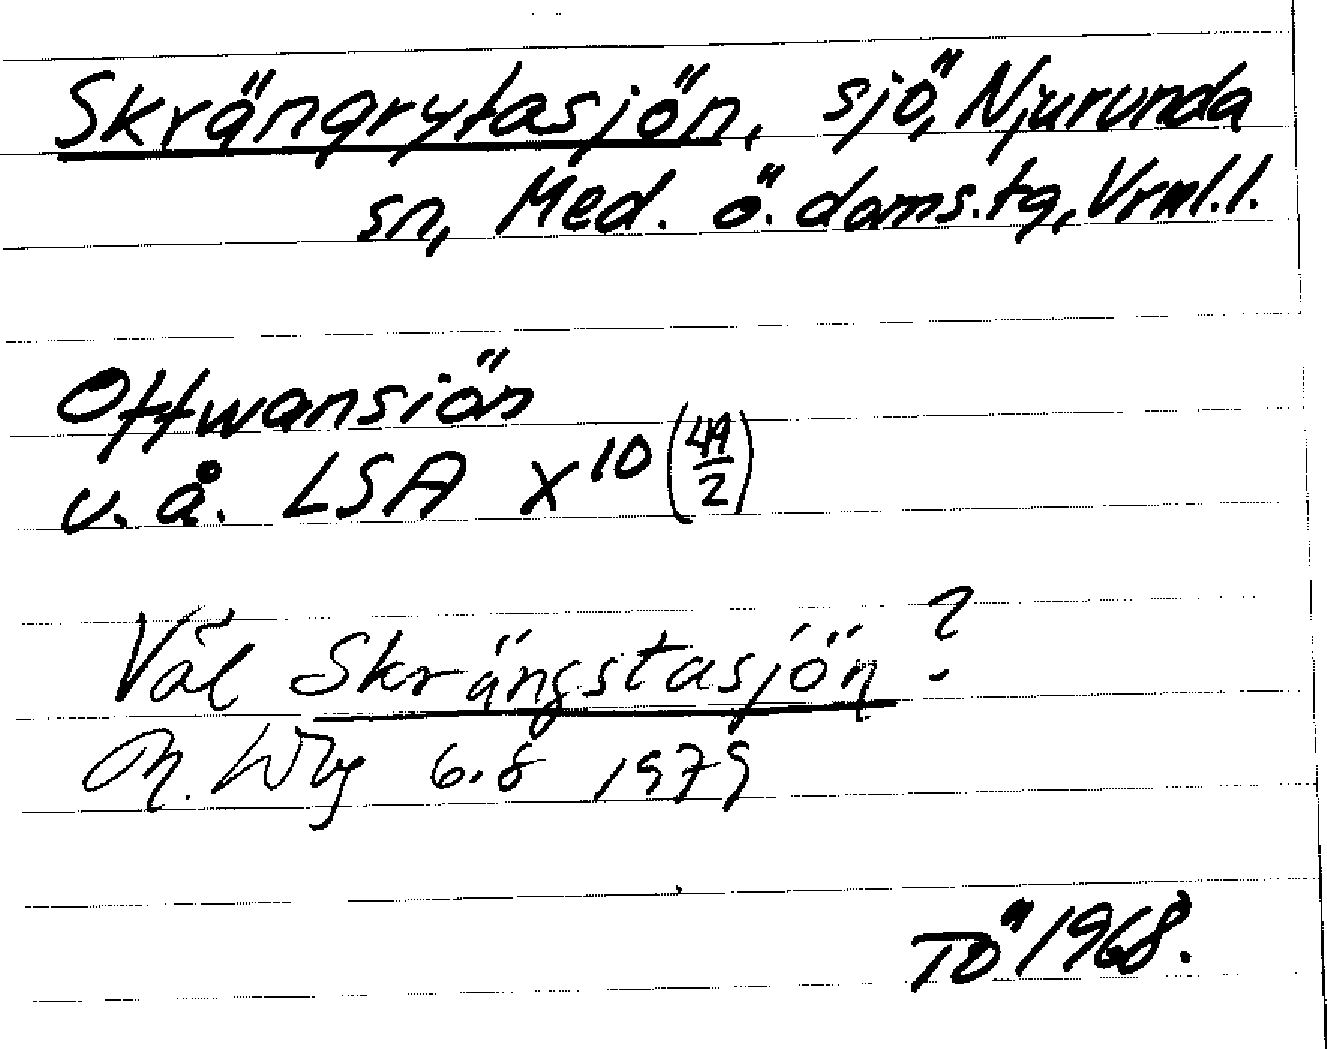 Skrängrytasjön, sjö, Njurunda
sn, Med. ö. doms.tg, Vrml.l.
Offwansiön
u.å. LSA X10 (49/2)
Väl Skrängstasjön?
6.8 1979
TÖ 1968.